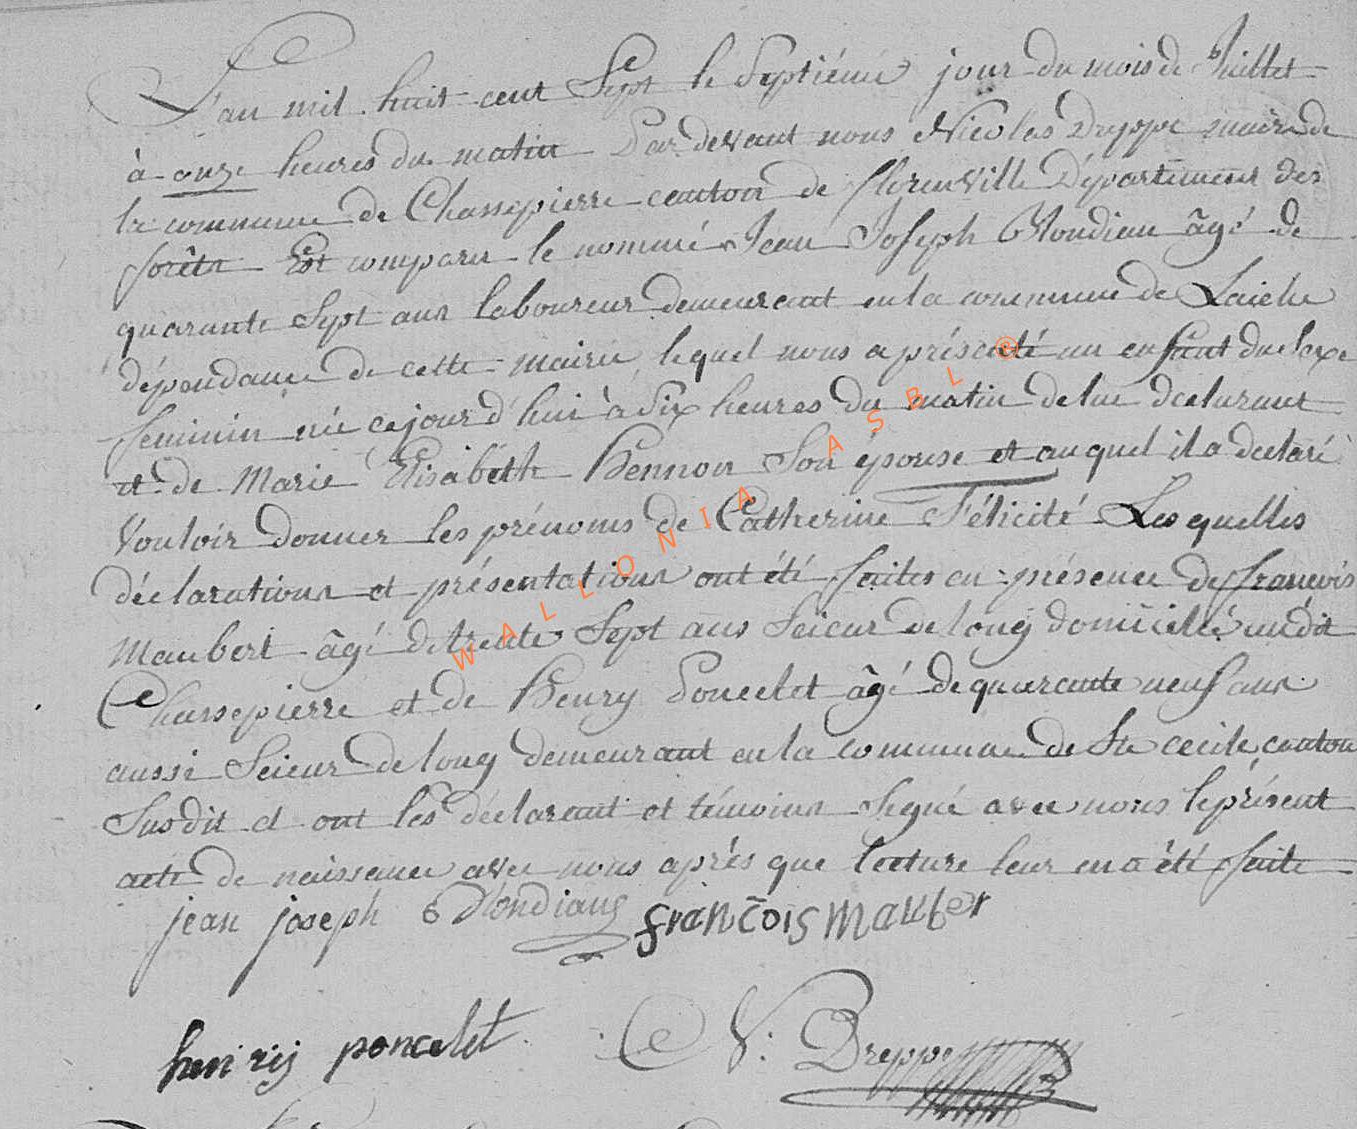 L'an mil huit cent Sept le Septiéme jour du mois de Juillet
à onze heures du matin Par devant nous Nicolas Dreppe maire de
la commune de Chassepierre canton de florenville Département des
forêts Est comparu le nommé Jean Joseph Blondiau âgé de
quarante Sept ans laboureur demeurant en la commune de Laiche
dépendance de cette mairie lequel nous a présenté un enfant du Sexe
feminin née cejourd'hui à dix heures du matin de lui declarant
et de Marie Elisabéth Hennon Son épouse et auquel il a declaré
Vouloir donner les prénoms de Catherine Félicité Les quelles
déclarations et présentations ont été faites en présence de francois
Maubert âgé de trente Sept ans Scieur de long domicilié audit
Chassepierre et de Henry Poncelet âgé de quarante neuf ans
aussi Scieur de long demeurant en la commune de Ste cecile canton
Susdit et ont les déclarant et témoins Signé avec nous le présent
acte de naissance avec nous après que lecture leur en a été faite
jean joseph Blondiaux françois Mauber
henrij poncelet N: Dreppe
WALLONIA ASBL ®